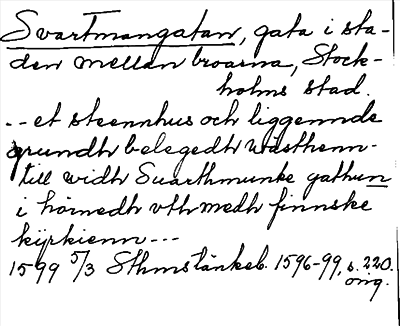 Svartmangatan, gata i sta-
den mellan broarna, Stock-
holms stad.
-- et steennhus och liggennde
grundh belegedh wästhenn-
till widh Suarthmunke gathun
i hörnedh vth medh finnske
kÿrkienn ---
1599 5/3 Sthms tänkeb. 1596-99, s. 220.
orig.